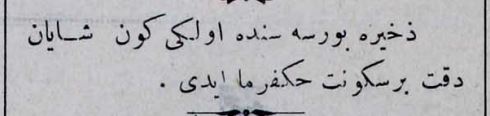 ذخیره بورسه سنده اولکی کون شــایان
دقت برسکونت حکفرما ایدی .